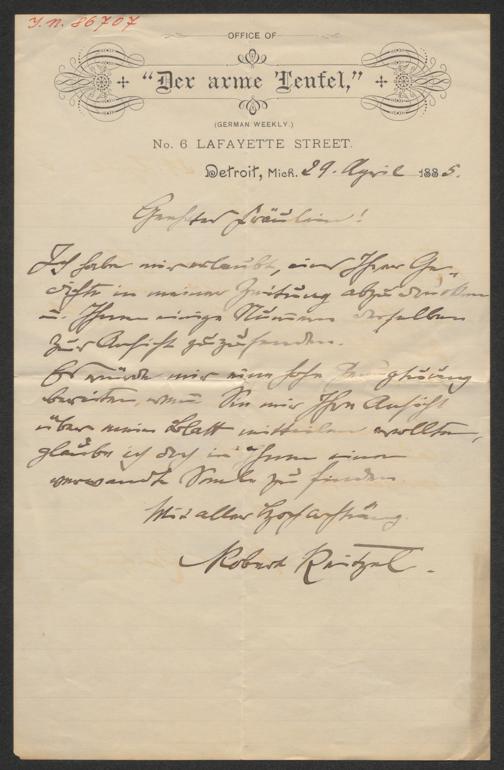 I. N. 86707
OFFICE OF
"Der arme Teufel,"
(GERMAN WEEKLY.)
No. 6 LAFAYETTE STREET.
Detroit, Mich. 29. April 1885.
Geehrtes Fräulein!
Ich habe mir erlaubt, eins Ihrer Ge-
dichte in meiner Zeitung abzudrucken
u. Ihnen einige Nummern derselben
zur Ansicht zuzusenden.
Es würde mir eine hohe Genugtuung
bereiten, wenn Sie mir Ihre Ansicht
über mein Blatt mitteilen wollten,
glaube ich doch in Ihnen eine
verwandte Seele zu finden.
Mit aller Hochachtung
Robert Reitzel.